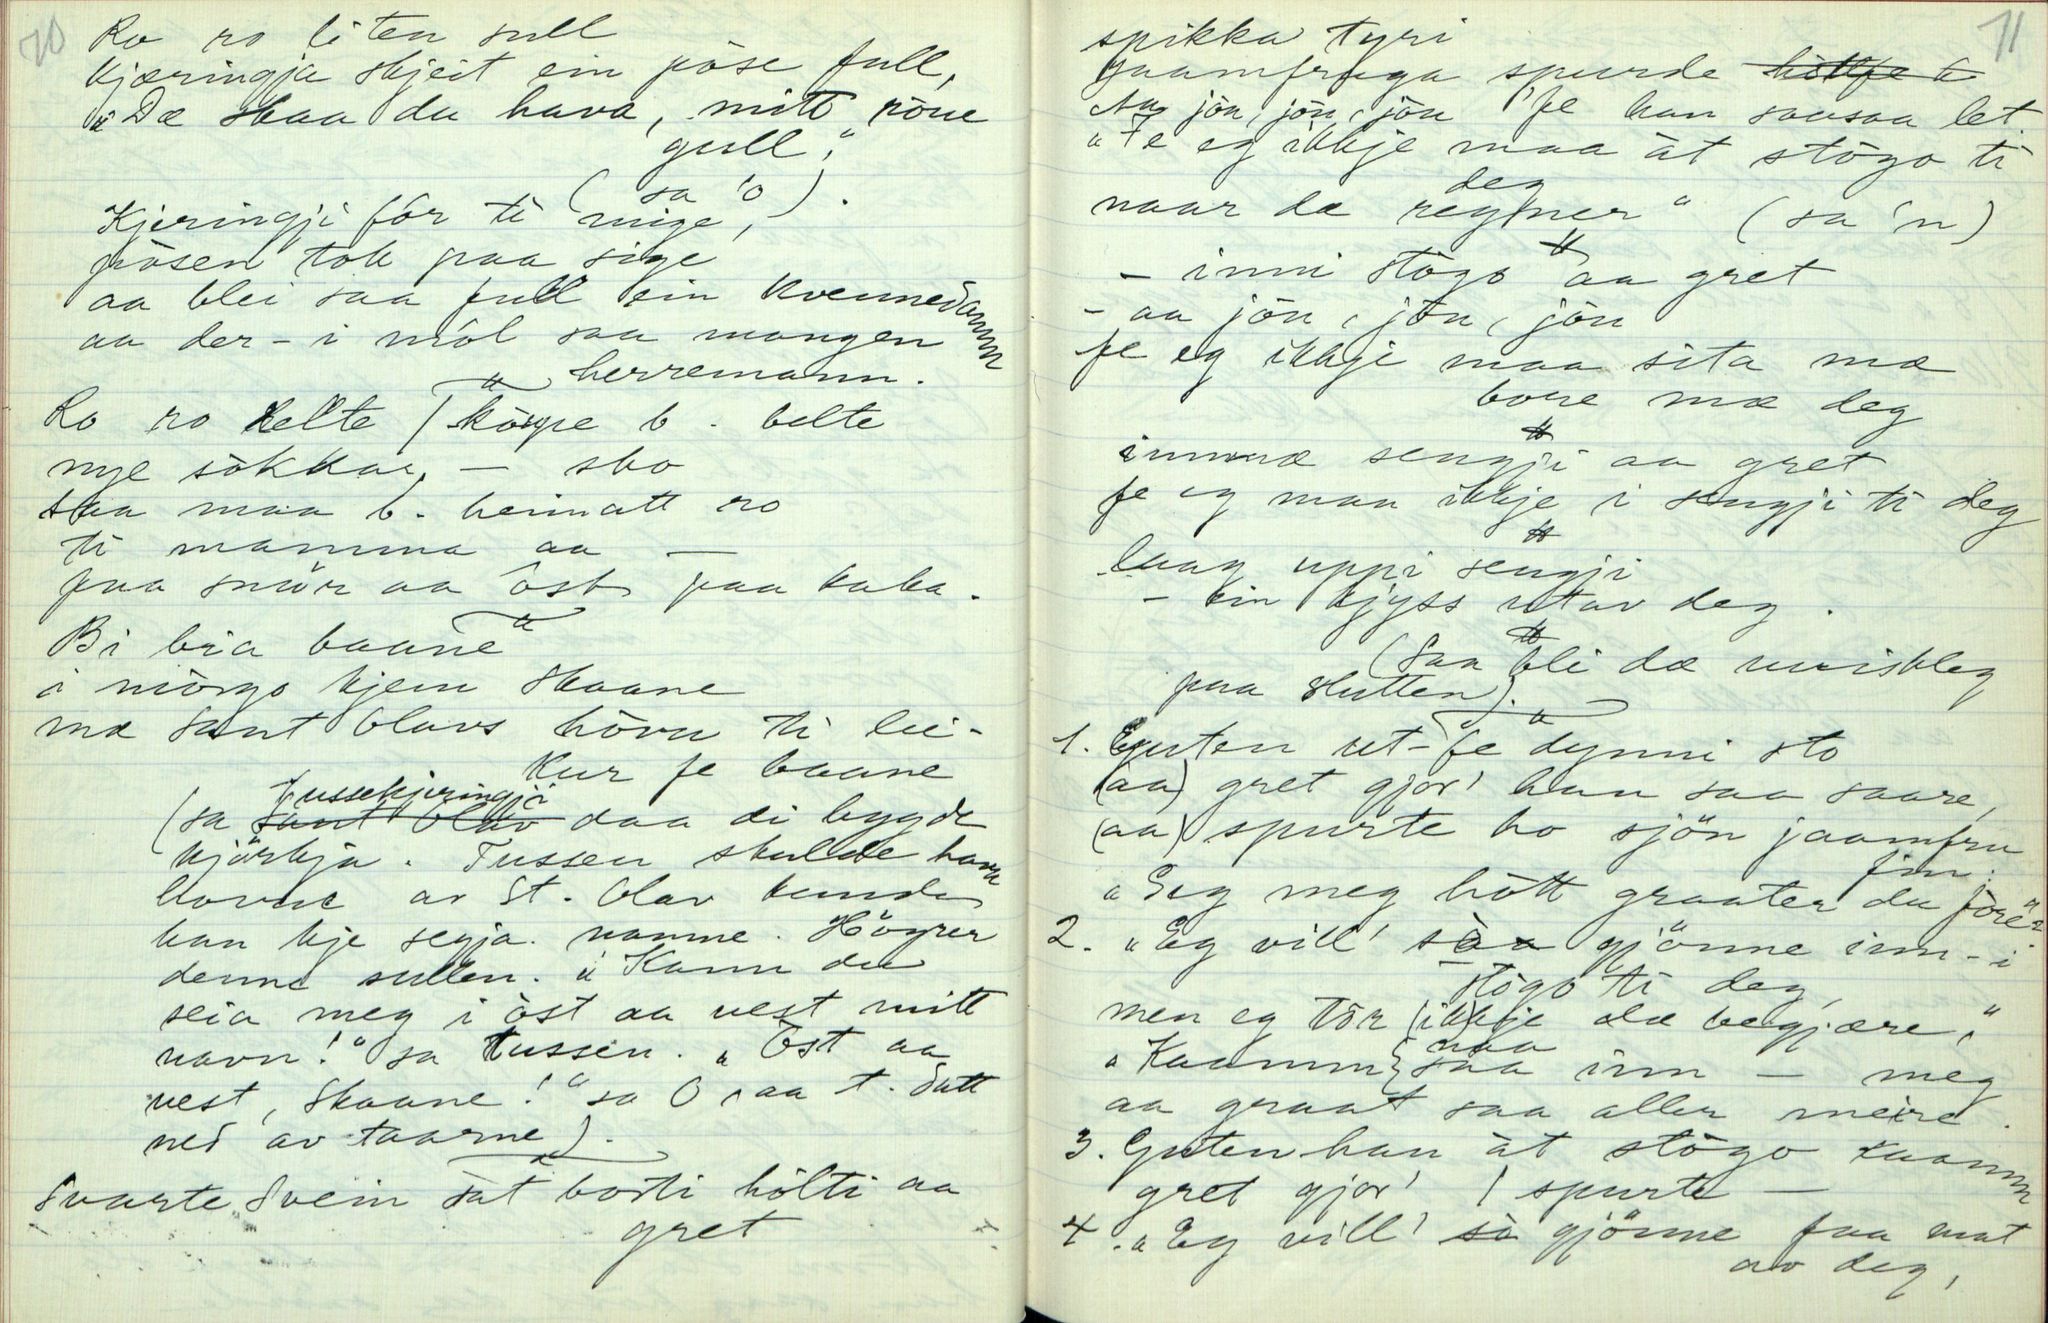 70
Ro ro liten sull
kjæringja skjeit ein pòse full,
"Dæ skaa du hava, mitt röue
gull,"
(sa 'o).
Kjeringji fór ti mige,
pòsen tok paa sige
aa blei saa full ein kvennedamm
aa der - i mól saa mangen
herremann.
Ro ro til kòype b. belte
nye sòkkar, — sko
saa maa b. heimatt ro
ti mamma aa —
faa smör aa òst paa kaka.
Bi bia baane
i mòrgo kjem Skaane
mæ Sant Olavs hòvu ti lei-
kur fe baane
(sa Tussekjeringji daa di bygde
kjörkja. Tussen skulde hava
hovue av St. Olav kunde
han kje segja namne. Höyrer
denne sullen. "Kann du
seia meg i òst aa vest mitt
navn!" sa tussen. "Öst aa
vest, Skaane!" sa O, aa t. datt
ned av taarne).
Svarte Svein sat borti hòlti aa
gret
71
spikka tyri
Jaamfruga spurde
Aa jòn, jòn, jòn fe han sausaa let
"Fe eg ikkje maa àt stògo ti
deg
naar dæ regner" (sa 'n)
- inni stògo aa gret
- aa jòn, jòn, jòn
fe eg ikkje maa sita mæ
bore mæ deg
immæ sengji aa gret
fe eg maa ikkje i sengji ti deg
laag uppi sengji
- ein kjyss utav deg.
(Saa bli dæ uviskleg
paa slutten).
1. Guten ut-fe dynni sto
(aa) gret gjor' han saa saare,
(aa) spurte ho sjön jaamfru
fin:
"Seg meg hòtt graater du fòre"?
2. "Eg vill' sàa gjönne inn - i
stògo ti deg,
men eg tòr (ik)kje dæ begjære,"
"Kaamm saa inn — meg
naa
aa graat saa aller meire.
3. Guten han àt stògo kaamm
gret gjor' / spurte —
4. "Eg vill' sà gjönne faa mat
av deg,